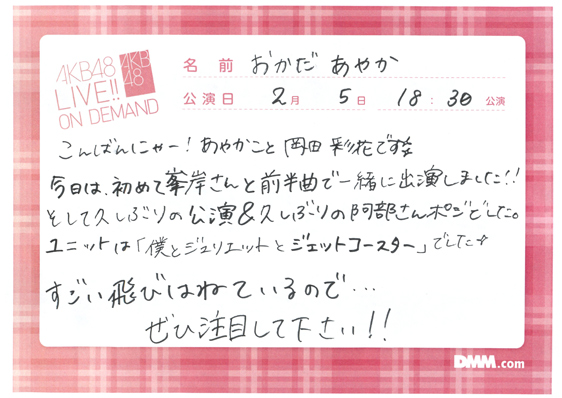 AKB48
LIVE!!
ON DEMAND
AKB
48
名前 おかだ あやか
公演日 2月 5日 18:30 公演
こんばんにゃー!あやかこと岡田彩花です☆
今日は、初めて峯岸さんと前半曲で一緒に出演しました!!
そして久しぶりの公演&久しぶりの阿部さんポジでした。
ユニットは「僕とジュリエットとジェットコースター」でした☆
すごい飛びはねているので…
ぜひ注目して下さい!!
DMM.com